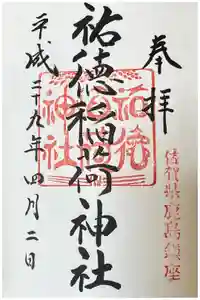 奉拝
佐賀県鹿島鎮座
祐徳稲荷神社
祐徳
稲荷
神社
平成二十九年四月二日